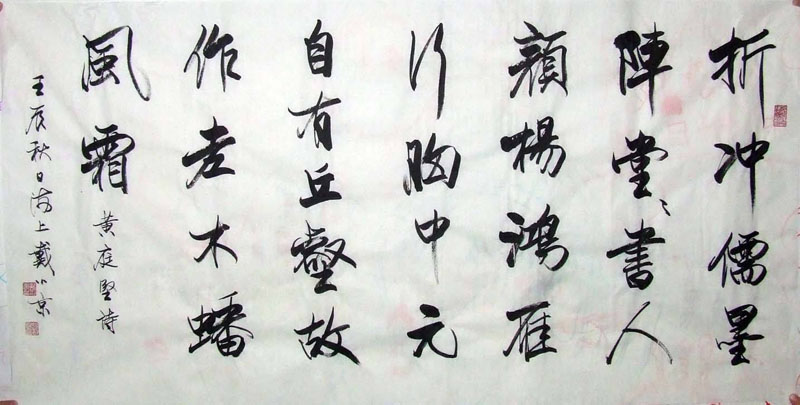 折冲儒墨
陣堂〻書入
顔楊鴻雁
行胸中元
自有丘壑故
作老木蟠
風霜
黄庭堅詩
壬辰秋日海上戴小京